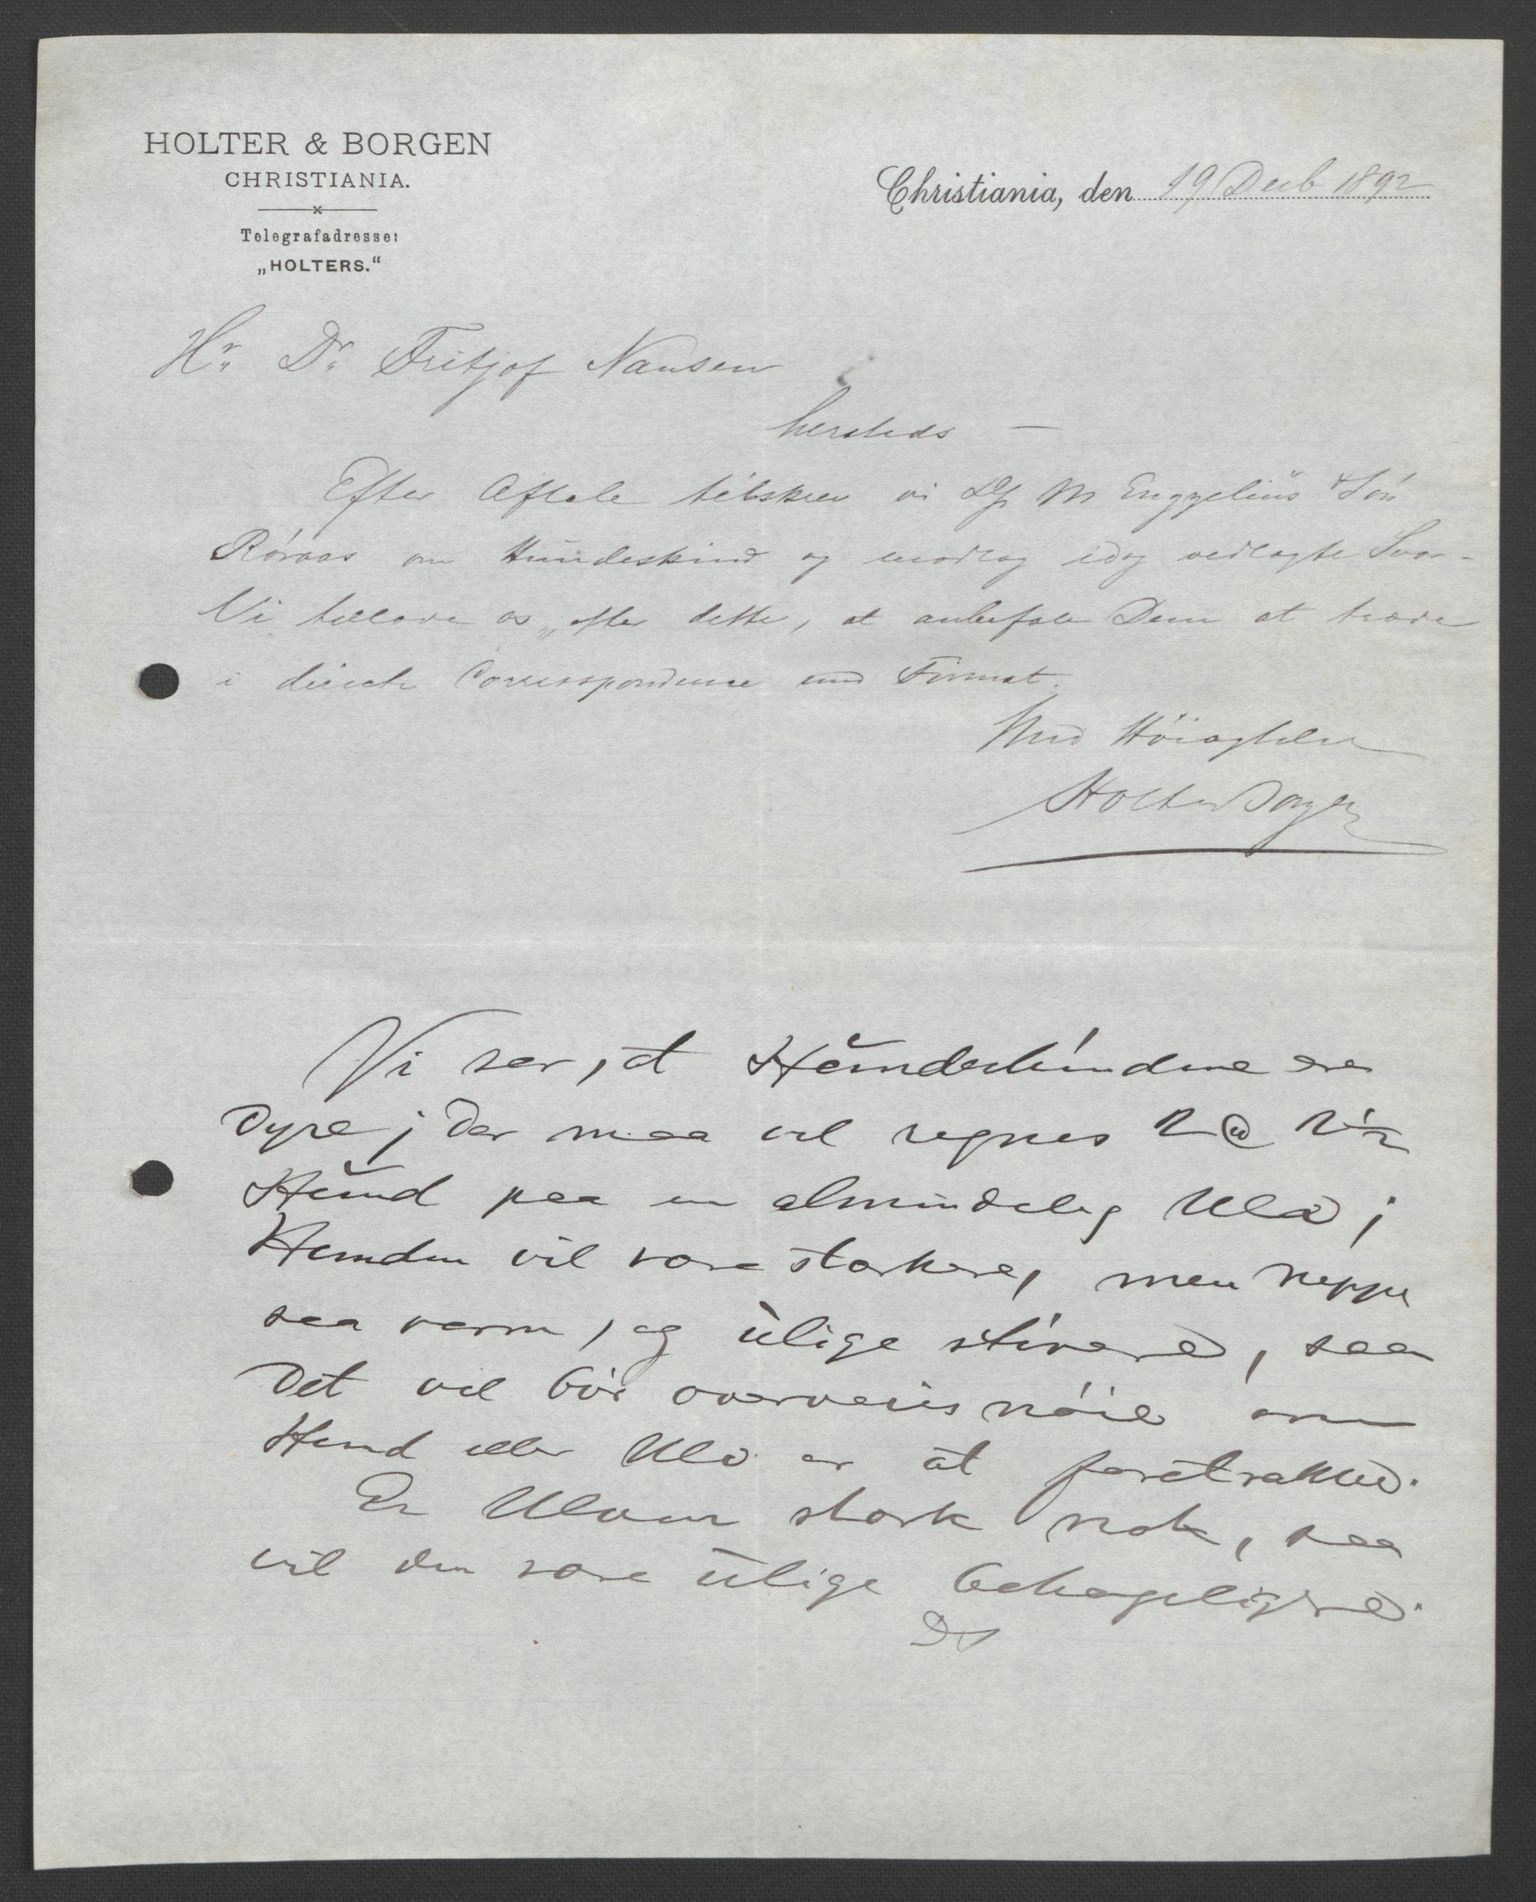 HOLTER & BORGEN
CHRISTIANIA.
Telegrafadresse:
„HOLTERS."
Christiania, den 19 Decb 1892
Hr. Dr. Fritjof Nansen
hersteds —
Efter Aftale tilskrev vi DHr M Engzelius & Sön
Röraas om Hundeskind og modtog idag vedlagte Svar -
Vi tillade os, efter dette, at anbefale Dem at træde
i directe Correspondence med Firmaet.
Med Höiagtelse
Holter Borgen
Vi ser, at Hundeskindene ere
dyre; der maa vel regnes 2 @ 2½
Hund paa en almindelig Ulv;
Hunden vil være stærkere, men neppe
saa varm, og ulige stivere, saa
det vel bör overveies nöie om
Hund eller Ulv er at foretrække.
Er Ulven stærk nok, saa
vil den være ulige behageligere.
DS